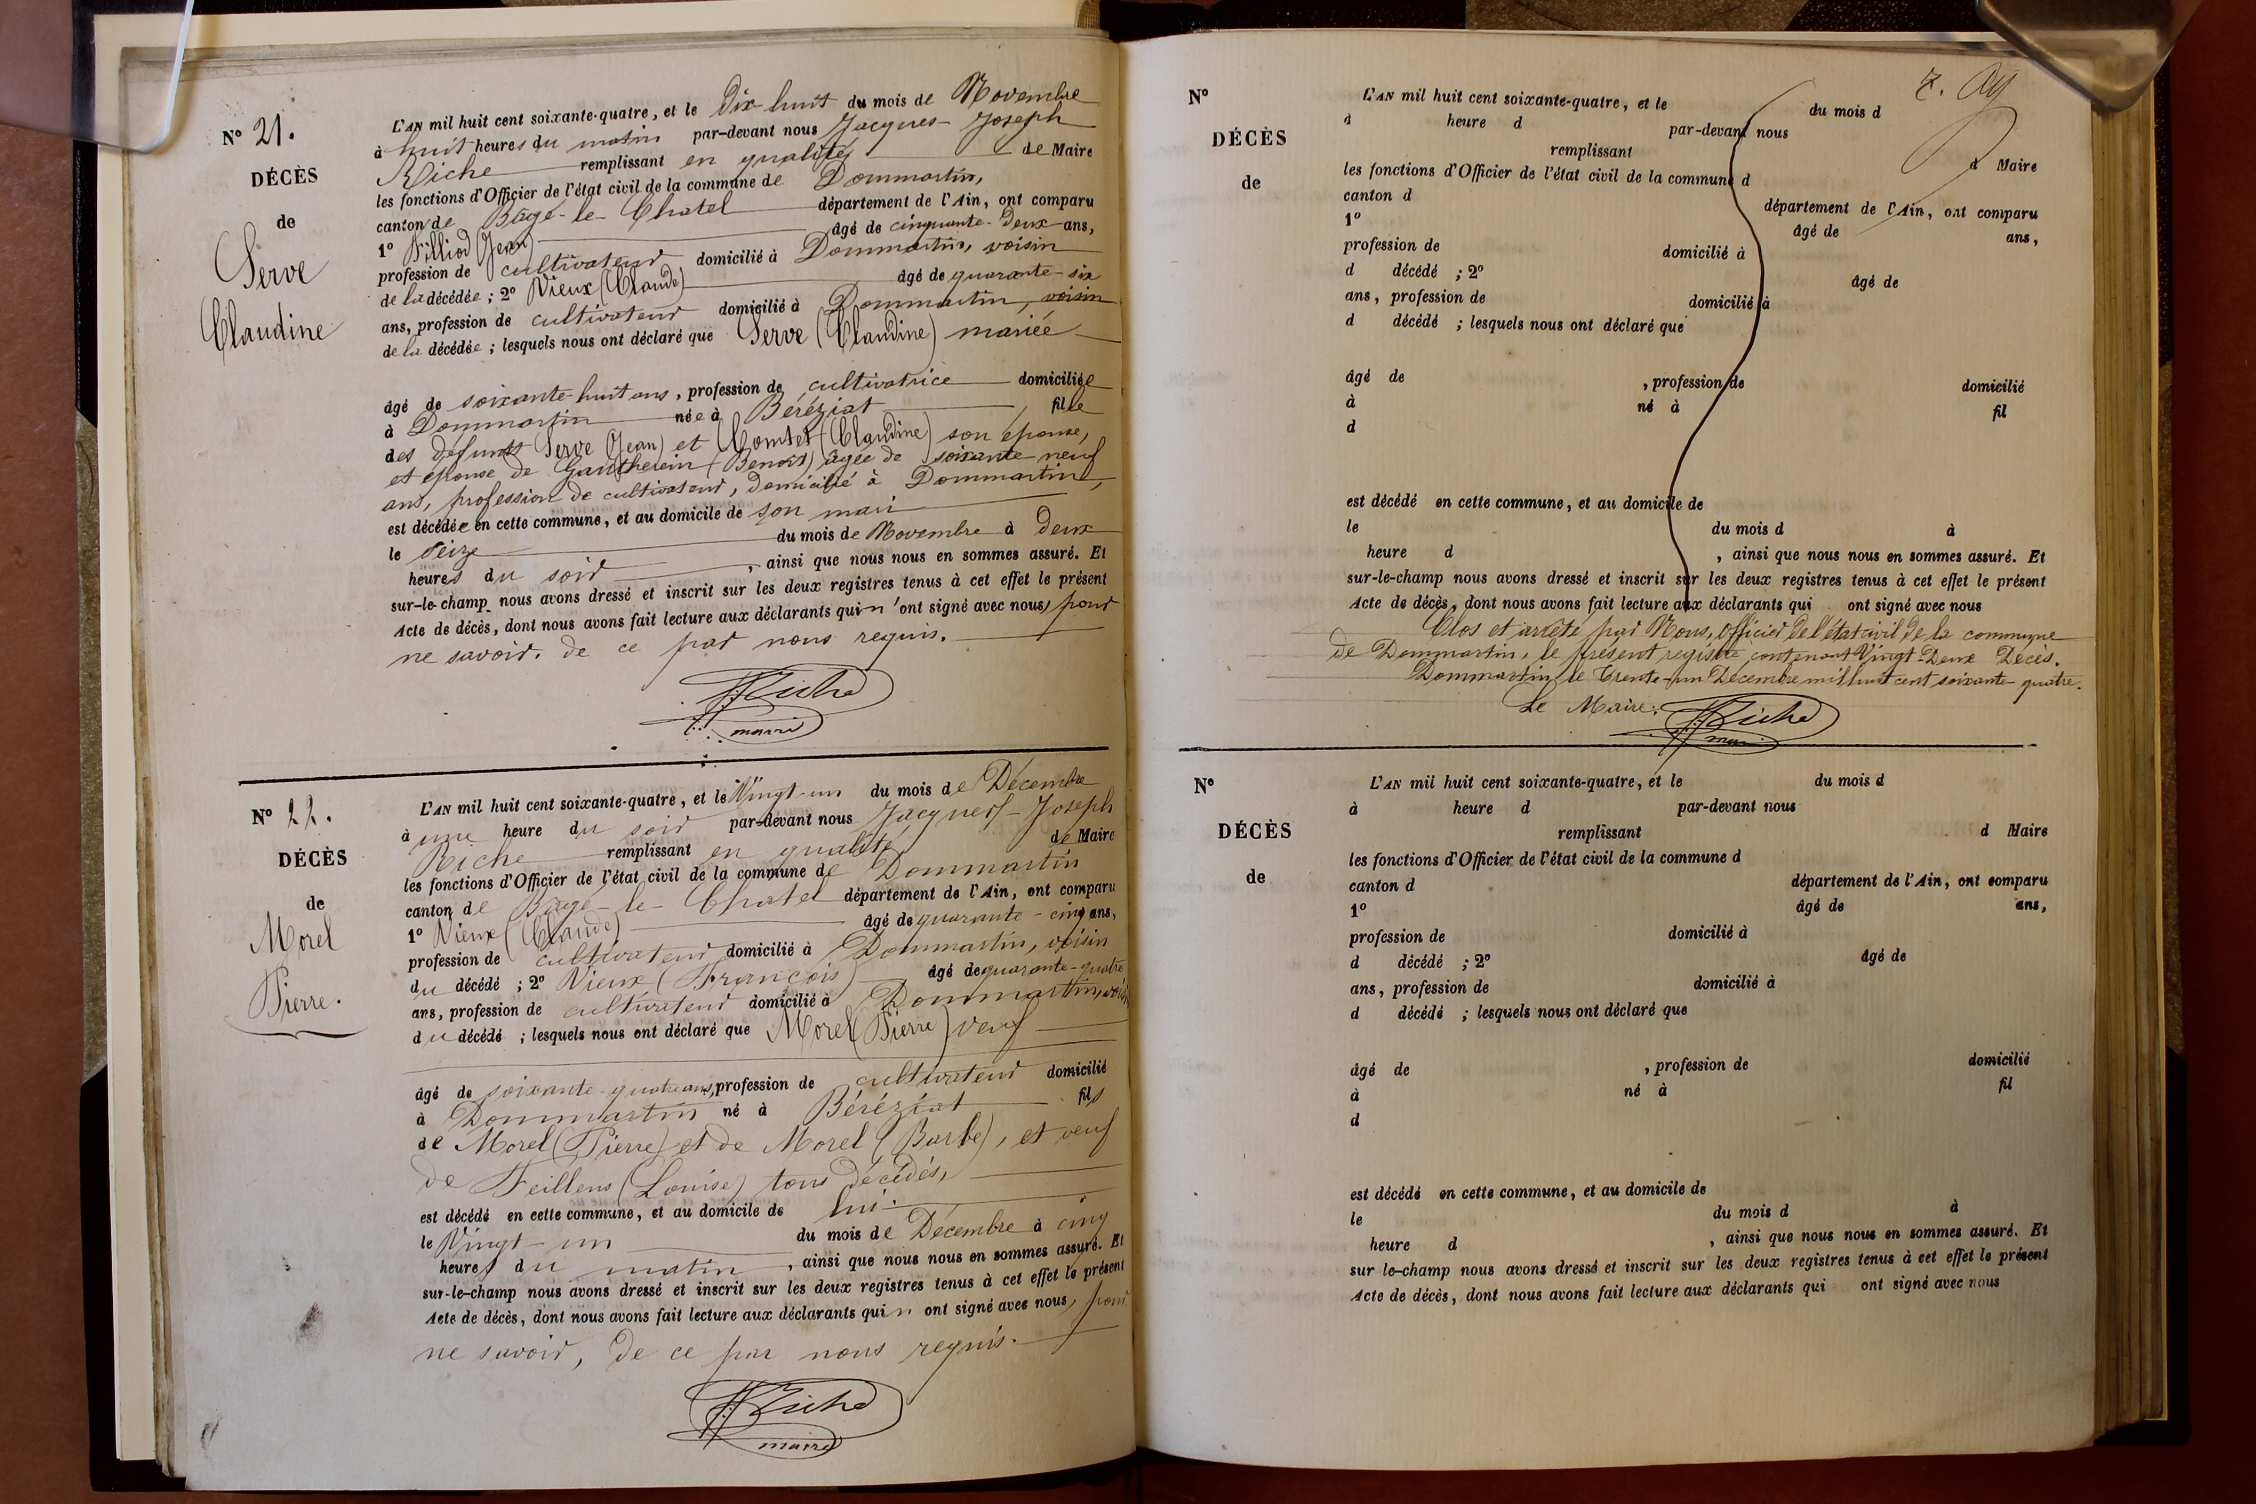 N° 21.
DÉCÈS
de
Serve
Claudine
L'AN mil huit cent soixante-quatre, et le Dix-huit du mois de Novembre
à huit heures du matin par-devant nous Jacques-Joseph
Riche remplissant en qualité de Maire
les fonctions d'Officier de l'état civil de la commune de Dommartin,
canton de Bâgé-le-Chatel département de l'Ain, ont comparu
1° Pilliod (Jean) âgé de cinquante-deux ans,
profession de cultivateur domicilié à Dommartin, voisin
de la décédée ; 2° Vieux (Claude) âgé de quarante-six
ans, profession de cultivateur domicilié à Dommartin, voisin
de la décédée ; lesquels nous ont déclaré que Serve (Claudine) mariée
âgé de soixante-huit ans, profession de cultivatrice domiciliée
à Dommartin née à Béréziat fille
des défunts Serve (Jean) et Comtet (Claudine) son épouse,
et épouse de (Benoît) âgée de soixante-neuf
ans, profession de cultivateur, domicilié à Dommartin,
est décédée en cette commune, et au domicile de son mari
le seize du mois de Novembre à deux
heures du soir, ainsi que nous nous en sommes assuré. Et
sur-le-champ nous avons dressé et inscrit sur les deux registres tenus à cet effet le présent
Acte de décès, dont nous avons fait lecture aux déclarants qui n'ont signé avec nous, pour
ne savoir. de ce par nous requis.
Riche
maire
N° 22.
DÉCÈS
de
Morel
Pierre.
L'AN mil huit cent soixante-quatre, et le Vingt-un du mois de Décembre
à une heure du soir par-devant nous Jacques-Joseph
Riche remplissant en qualité de Maire
les fonctions d'Officier de l'état civil de la commune de Dommartin
canton de Bâgé-le-Chatel département de l'Ain, ont comparu
1° Vieux (Claude) âgé de quarante-cinq ans,
profession de cultivateur domicilié à Dommartin, voisin
du décédé ; 2° Vieux (François) âgé de quarante-quatre
ans, profession de cultivateur domicilié à Dommartin, voisin
du décédé ; lesquels nous ont déclaré que Morel (Pierre) veuf
âgé de soixante-quatre ans, profession de cultivateur domicilié
à Dommartin né à Béréziat fils
de Morel (Pierre) et de Morel (Barbe), et veuf
de Feillens (Louise) tous décédés,
est décédé en cette commune, et au domicile de lui.
le Vingt-un du mois de Décembre à cinq
heures du matin, ainsi que nous nous en sommes assuré. Et
sur-le-champ nous avons dressé et inscrit sur les deux registres tenus à cet effet le présent
Acte de décès, dont nous avons fait lecture aux déclarants qui n ont signé avec nous, pour
ne savoir, de ce par nous requis.
Riche
maire
N°
DÉCÈS
de
L'AN mil huit cent soixante-quatre, et le du mois d
à heure d par-devant nous
remplissant d Maire
les fonctions d'Officier de l'état civil de la commune d
canton d département de l'Ain, ont comparu
1° âgé de ans,
profession de domicilié à
d décédé ; 2° âgé de
ans, profession de domicilié à
d décédé ; lesquels nous ont déclaré que
âgé de , profession de domicilié
à né à fil
d
est décédé en cette commune, et au domicile de
le du mois d à
heure d , ainsi que nous nous en sommes assuré. Et
sur-le-champ nous avons dressé et inscrit sur les deux registres tenus à cet effet le présent
Acte de décès, dont nous avons fait lecture aux déclarants qui ont signé avec nous
Clos et arrêté par Nous, officier de l'état civil de la commune
de Dommartin, le présent registre contenant Vingt-Deux Décès.
Dommartin le Trente-un Décembre mil huit cent soixante-quatre.
Le Maire:
Riche
N°
DÉCÈS
de
L'AN mil huit cent soixante-quatre, et le du mois d
à heure d par-devant nous
remplissant d Maire
les fonctions d'Officier de l'état civil de la commune d
canton d département de l'Ain, ont comparu
1° âgé de ans,
profession de domicilié à
d décédé ; 2° âgé de
ans, profession de domicilié à
d décédé ; lesquels nous ont déclaré que
âgé de , profession de domicilié
à né à fil
d
est décédé en cette commune, et au domicile de
le du mois d à
heure d , ainsi que nous nous en sommes assuré. Et
sur le-champ nous avons dressé et inscrit sur les deux registres tenus à cet effet le présent
Acte de décès, dont nous avons fait lecture aux déclarants qui ont signé avec nous